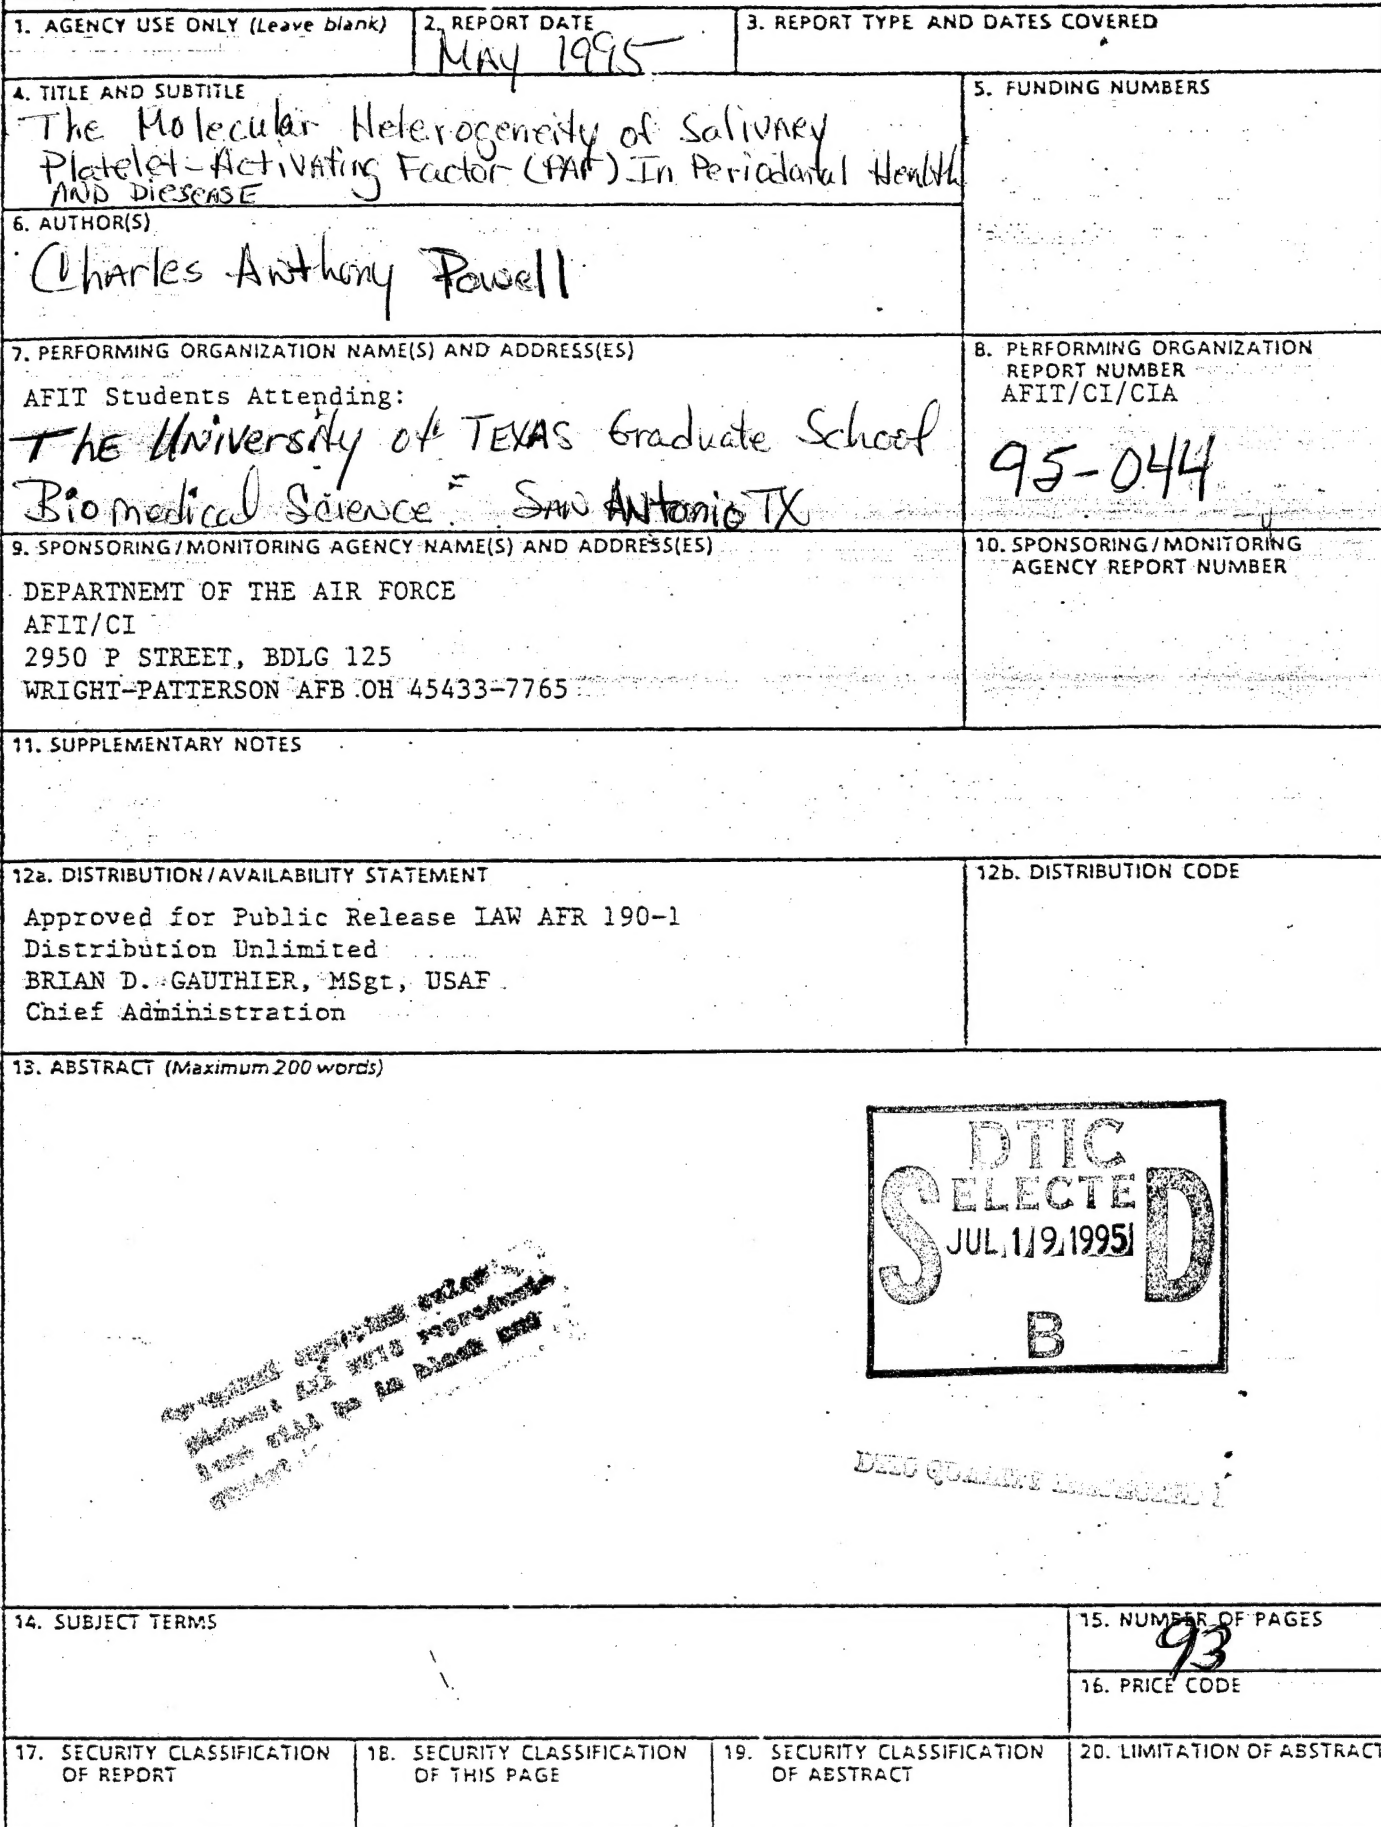 1. AGENCY USE ONLY (Leave blank)
2. REPORT DATE
MAY 1995
3. REPORT TYPE AND DATES COVERED
4. TITLE AND SUBTITLE
The Molecular Heterogeneity of Salivary
Platelet-Activating Factor (PAF) In Periodontal Health
AND DIESEASE
5. FUNDING NUMBERS
6. AUTHOR(S)
Charles Anthony Powell
7. PERFORMING ORGANIZATION NAME(S) AND ADDRESS(ES)
AFIT Students Attending:
The University of TEXAS Graduate School
Biomedical Science - SAN ANtonio TX
8. PERFORMING ORGANIZATION
REPORT NUMBER
AFIT/CI/CIA
95-044
9. SPONSORING/MONITORING AGENCY NAME(S) AND ADDRESS(ES)
DEPARTNEMT OF THE AIR FORCE
AFIT/CI
2950 P STREET, BDLG 125
WRIGHT-PATTERSON AFB OH 45433-7765
10. SPONSORING/MONITORING
AGENCY REPORT NUMBER
11. SUPPLEMENTARY NOTES
12a. DISTRIBUTION/AVAILABILITY STATEMENT
Approved for Public Release IAW AFR 190-1
Distribution Unlimited
BRIAN D. GAUTHIER, MSgt, USAF
Chief Administration
12b. DISTRIBUTION CODE
13. ABSTRACT (Maximum 200 words)
DTIC
S ELECTE D
JUL 19 1995
B
DTIC QUALITY INSPECTED 1
14. SUBJECT TERMS
15. NUMBER OF PAGES
93
16. PRICE CODE
17. SECURITY CLASSIFICATION
OF REPORT
18. SECURITY CLASSIFICATION
OF THIS PAGE
19. SECURITY CLASSIFICATION
OF ABSTRACT
20. LIMITATION OF ABSTRACT